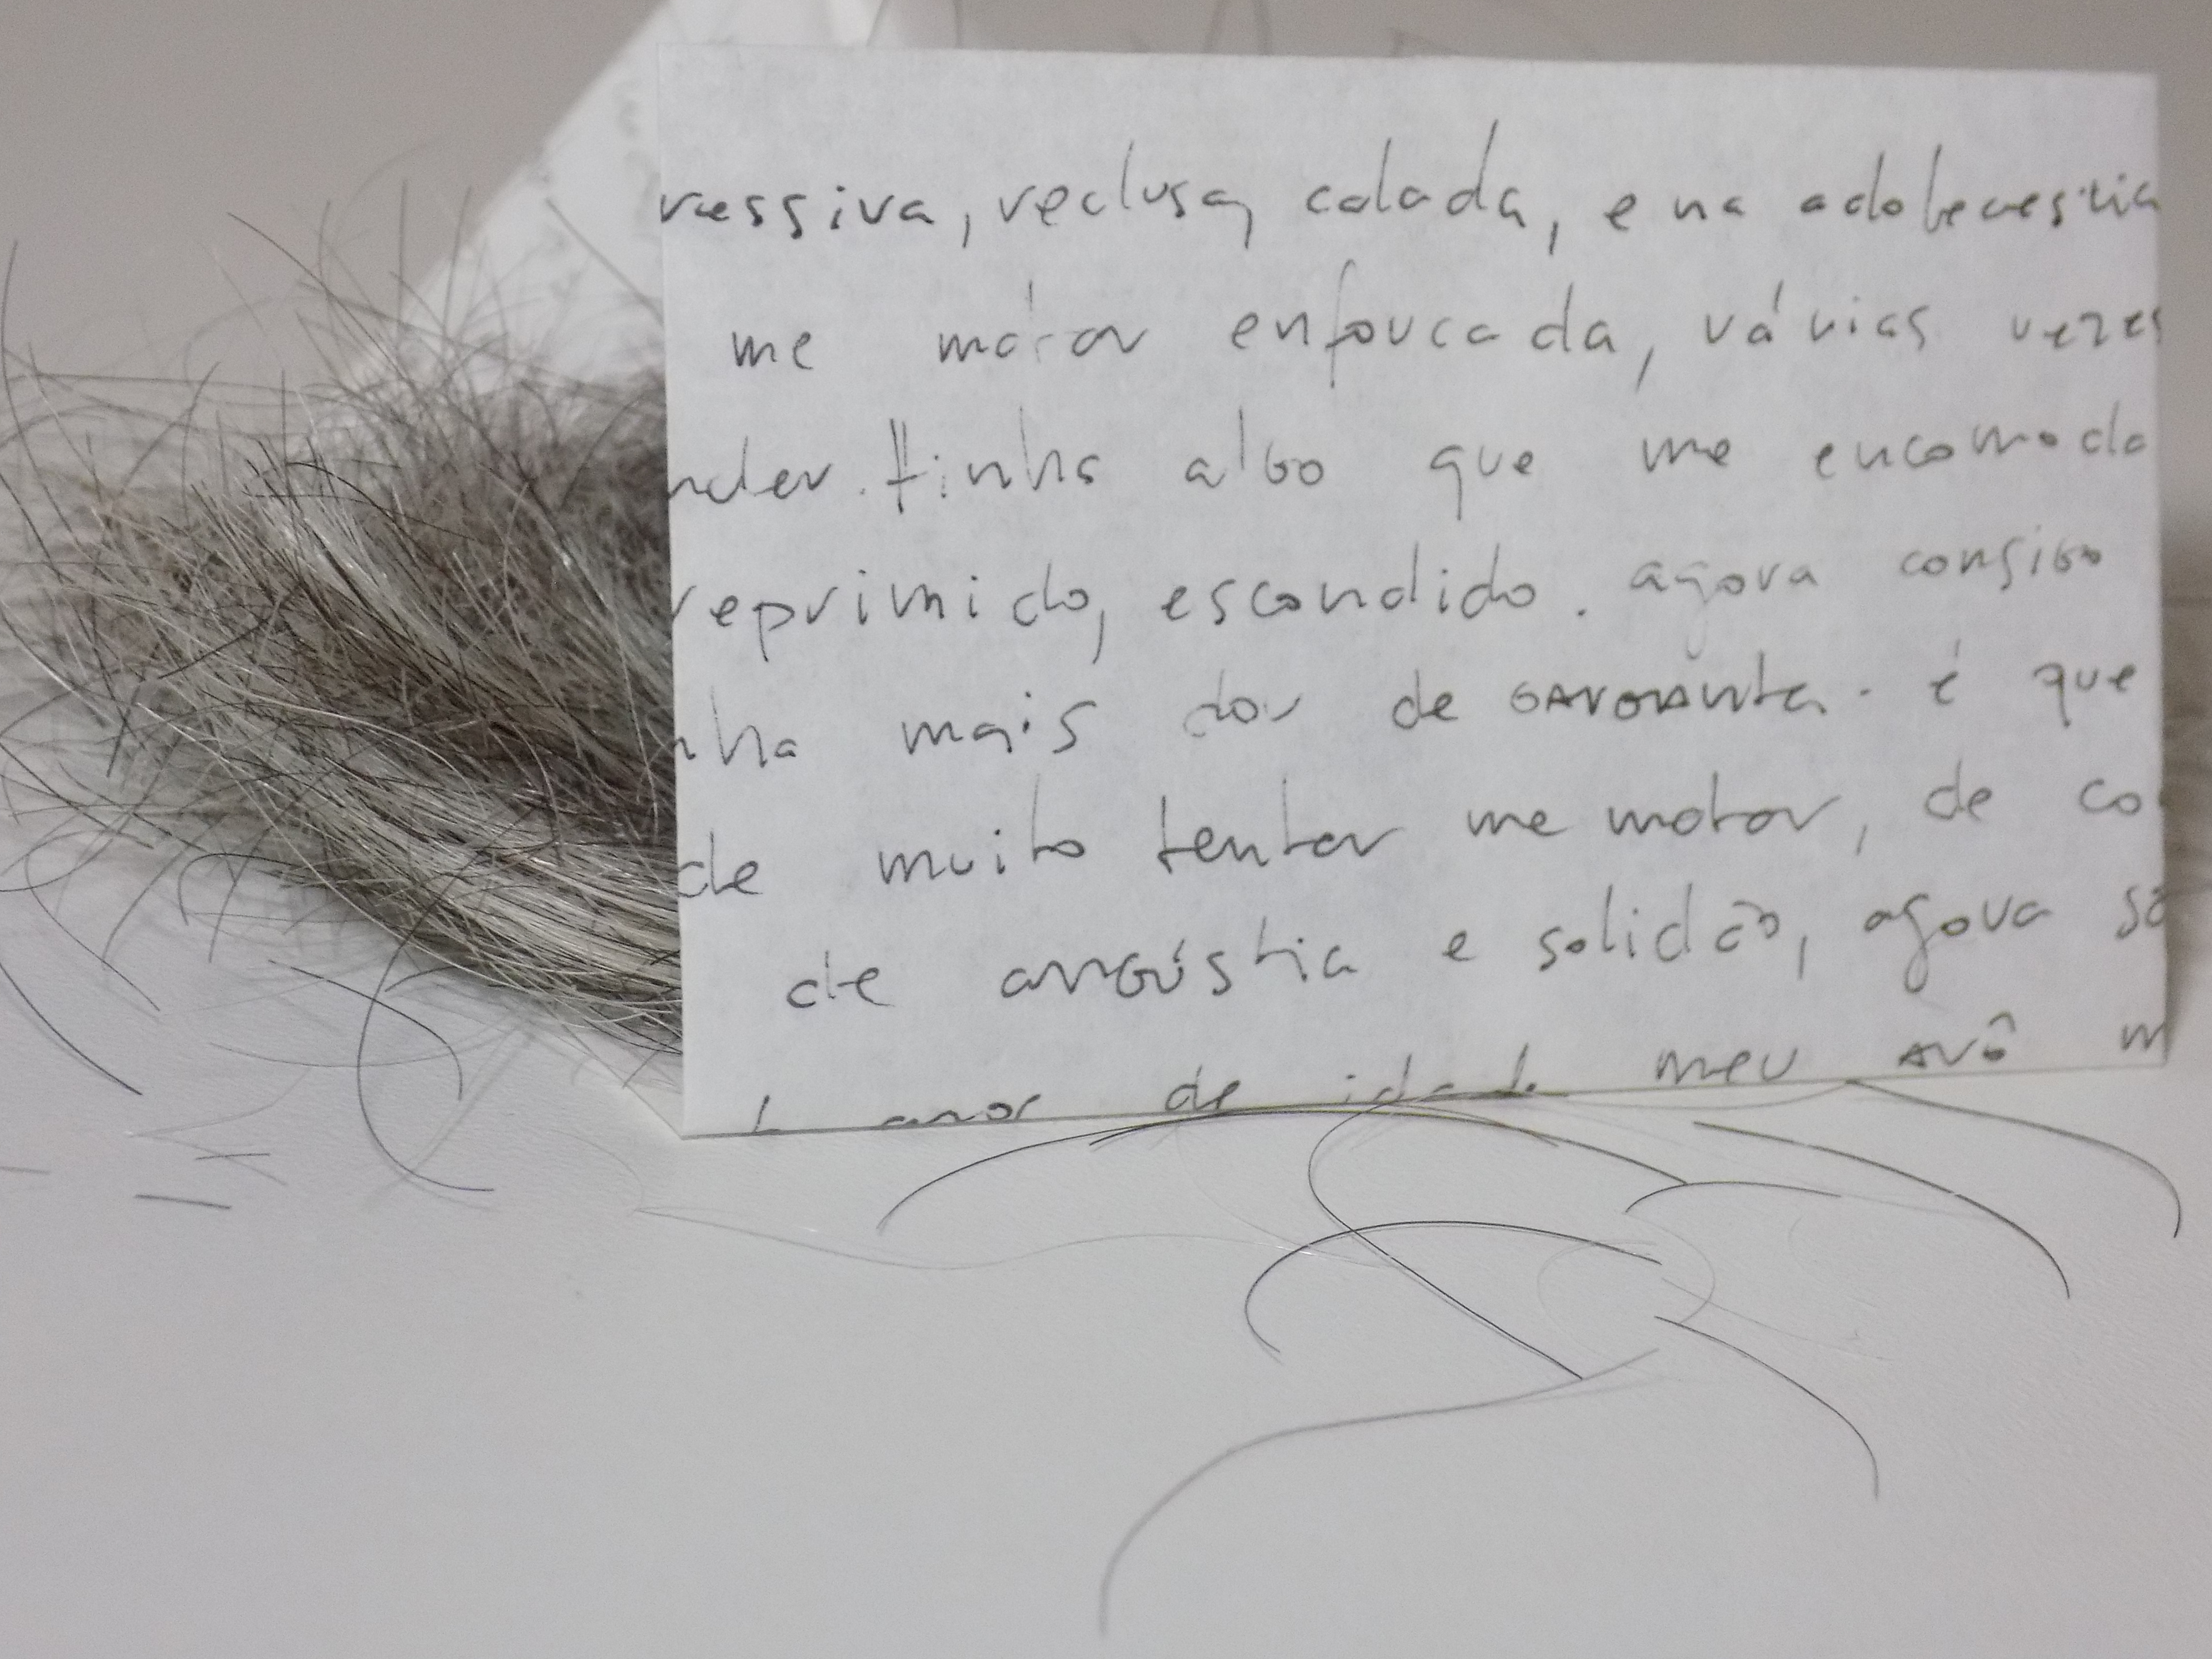 ressiva, reclusa, calada, e na adolecestia
me matar enforcada, várias vezes
nder. tinha algo que me encomoda
reprimido, escondido. agora consigo
nha mais dor de garganta. é que
de muito tentar me matar, de co
de angústia e solidão, agora so
anos de idade meu avô m